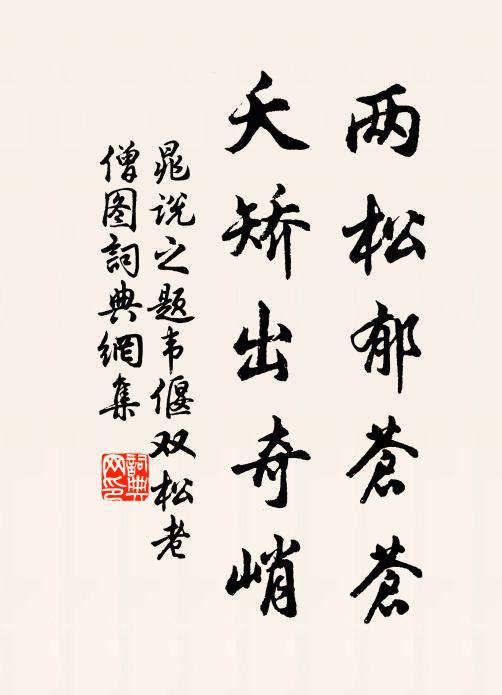 两松郁苍苍
夭矫出奇峭
晁说之题韦偃双松老
僧图词典網集
詞典
网印